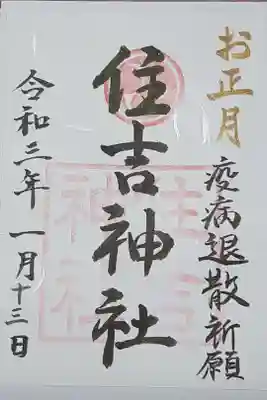 お正月
疫病退散祈願
住吉神社
住吉
神社
令和三年 一月十三日